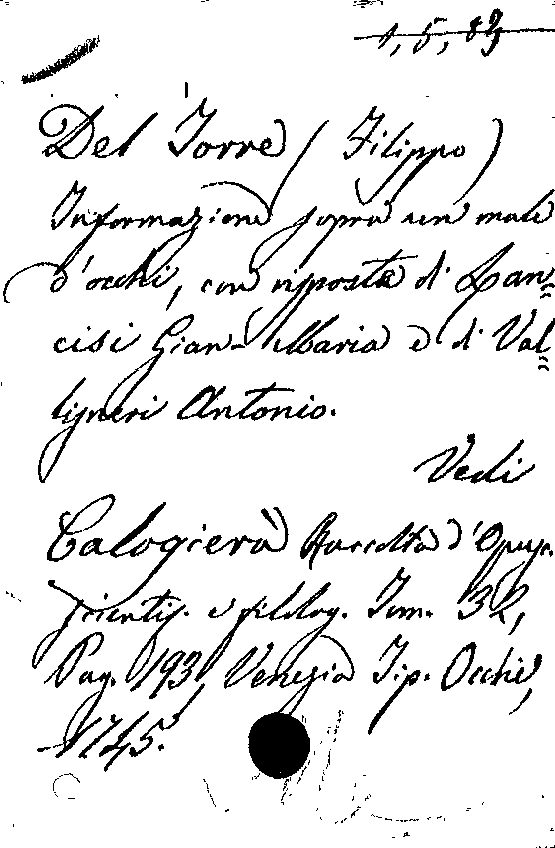 1, 5, 83
Del Torre (Filippo)
Informazione sopra un male
d'occhi, con risposta di Lan=
cisi Gian-Maria e di Val=
lisneri Antonio.
Vedi
Calogierà Raccolta d'Opusc.
scientif. e filolog. Tom. 32,
Pag. 193, Venezia Tip. Occhi,
1745.